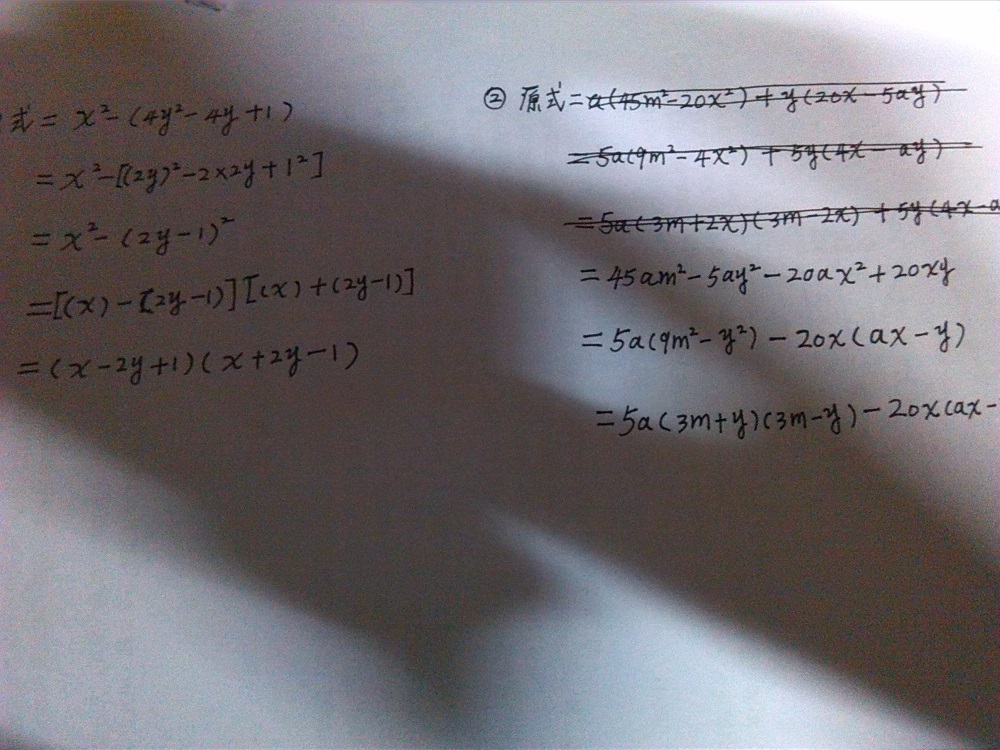 式 = x²-(4y²-4y+1)
= x²-[(2y)²-2×2y+1²]
= x²-(2y-1)²
=[(x)-(2y-1)][(x)+(2y-1)]
=(x-2y+1)(x+2y-1)
② 原式=a(45m²-20x²)+y(20x-5ay)
=5a(9m²-4x²)+5y(4x-ay)
=5a(3m+2x)(3m-2x)+5y(4x-a
=45am²-5ay²-20ax²+20xy
=5a(9m²-y²)-20x(ax-y)
=5a(3m+y)(3m-y)-20x(ax-